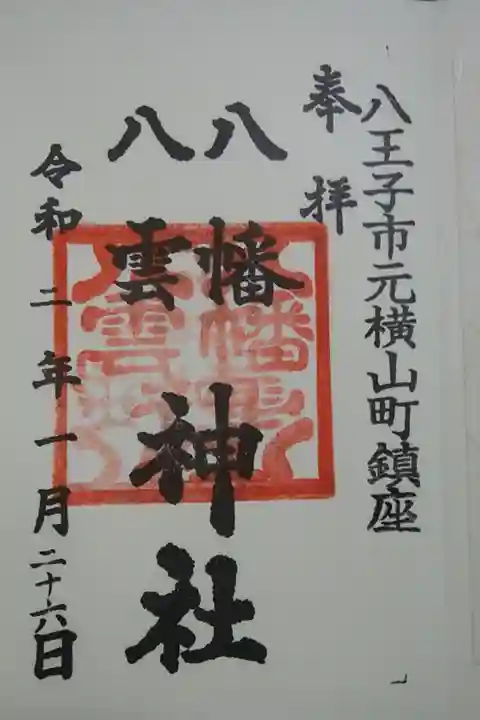 八王子市元横山町鎮座
奉拝
八幡
八雲
神社
令和二年一月二十六日